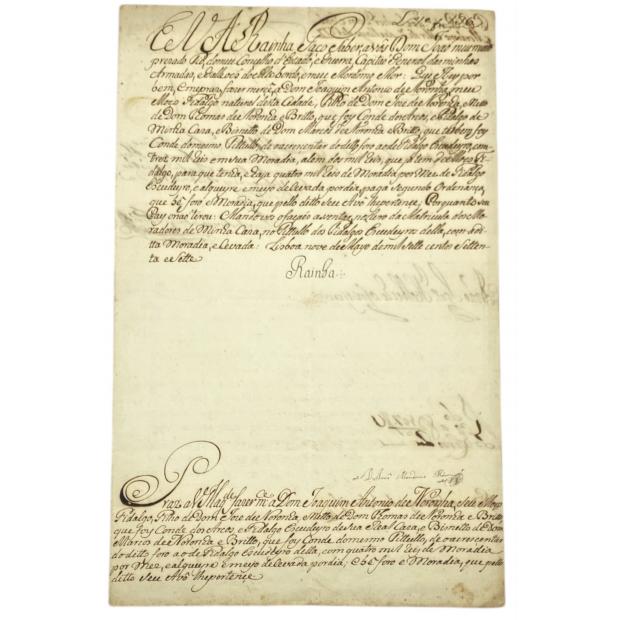 EU A Rainha, Faço saber, a vós Dom João
prezado Pr. do meu Concelho d'Estado, e Guerra, Capitão General das minhas
Armadas, e Mordomo Mor: Que Hey por
bem, fazer mercê, a Dom Joaquim Antonio de Noronha, meu
Moço Fidalgo natural desta Cidade, Filho de Dom Joze de Noronha, Netto
de Dom Thomas de Noronha e Britto, que foy Conde dos Arcos, e Fidalgo de
Minha Caza, e Bisnetto de Dom Marcos de Noronha e Britto, que tambem foy
Conde do mesmo Tittullo, de o acrescentar do ditto foro ao de Fidalgo Escudeyro, com
trez mil reis em sua Moradia, alem dos mil reis, que já tem de Moço Fi-
dalgo, para que tenha, e haja quatro mil reis de Moradia por Mez de Fidalgo
Escudeyro, e alqueyre e meyo de Sevada por dia, paga segundo Ordenança,
que he o foro e Moradia, que pello ditto seu Avô lhe pertence; Porquanto seu
Pay o não tirou: Mando-vos o façais assentar, no Livro da Matricula dos Mo-
radores de Minha Caza, no Tittullo dos Fidalgos Escudeyros della, com a di-
tta Moradia e Sevada: Lisboa nove de Mayo de mil sette centos e settem-
ta e sette
Rainha
Praz a V. Mag.de fazer m.ce a Dom Joaquim Antonio de Noronha, Seu Moço
Fidalgo, Filho de Dom Joze de Noronha, Netto de Dom Thomas de Noronha e Britto
que foy Conde dos Arcos, e Fidalgo Escudeyro de sua Real Caza, e Bisnetto de Dom
Marcos de Noronha e Britto, que foy Conde do mesmo Tittullo, de o acrescentar
do ditto foro ao de Fidalgo Escudeyro della, com quatro mil reis, de Moradia
por Mez, e alqueyre e meyo de Sevada por dia; e he o foro e Moradia, que pello
ditto seu Avô lhe pertence